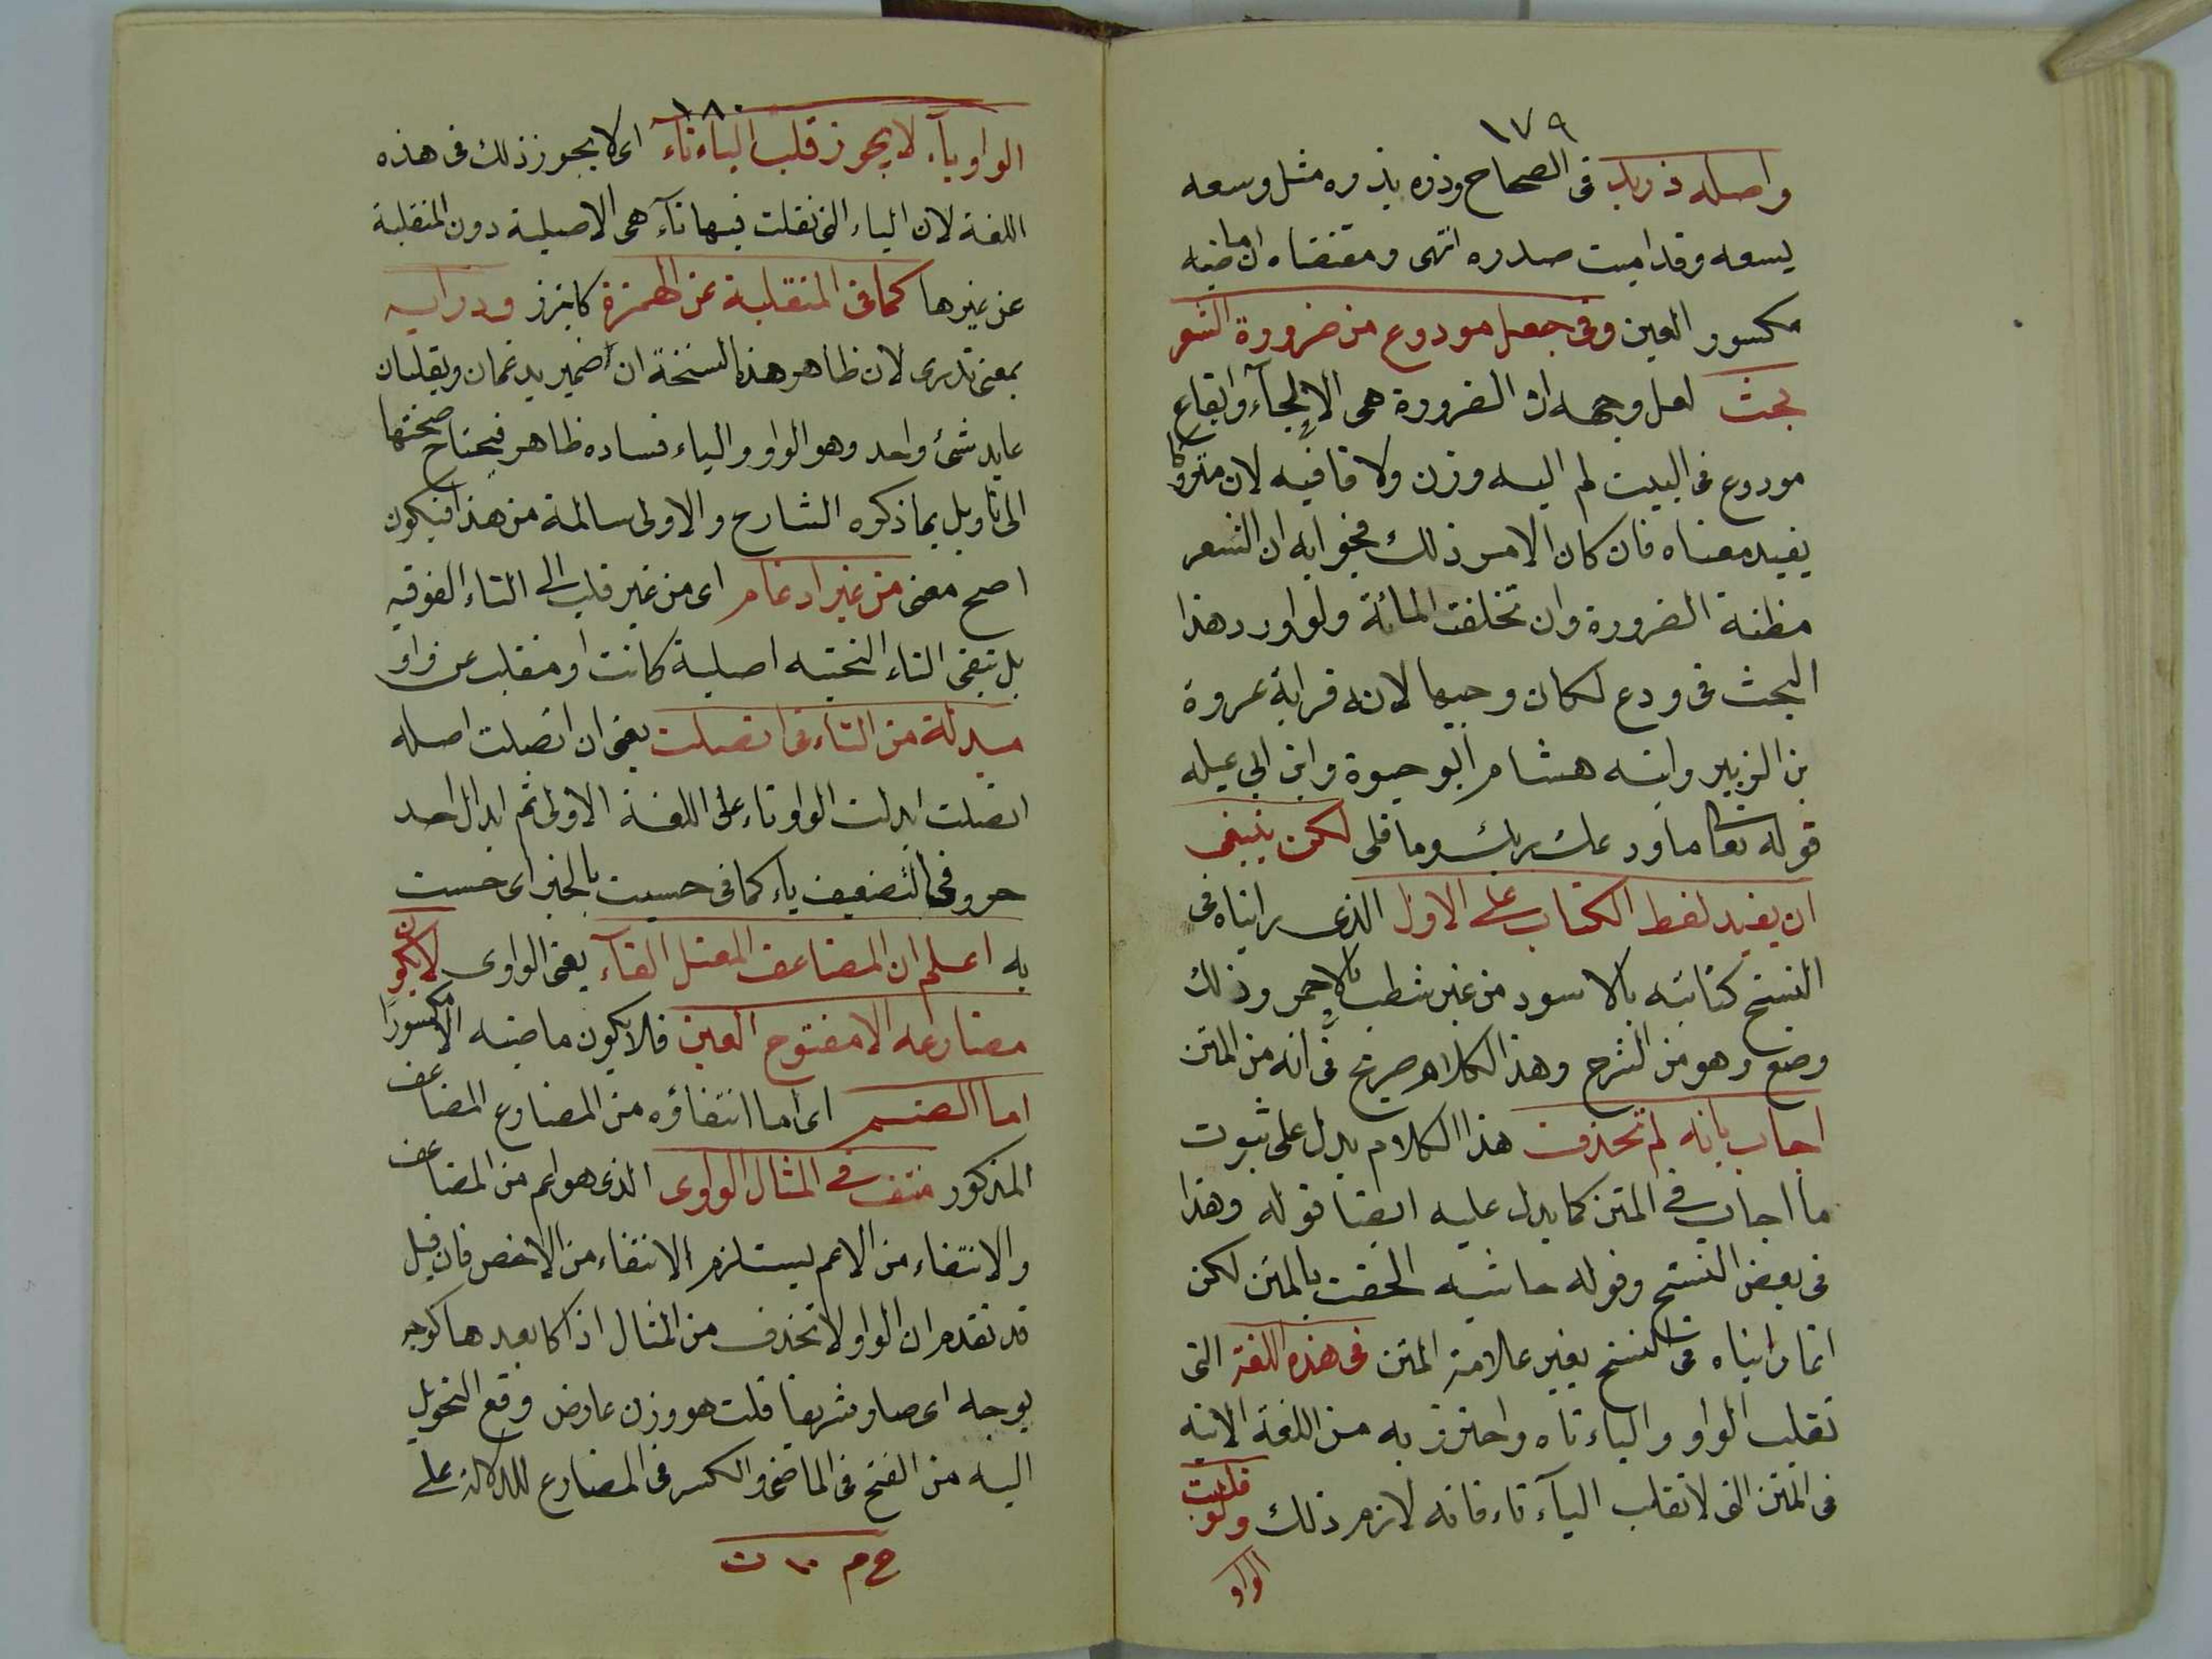 ١٧٩
واصله ذريد في الصحاح وذره يذره مثل وسعه
يسعه وقد اميت صدره انتهى ومقتضاه ان ماضيه
مكسور العين وفي جعل مودوع من ضرورة الشعر
بحث لعل وجهه ان الضرورة هي الالجاء وايقاع
مودوع في البيت لم اليه وزن ولا قافيه لان متروكا
يفيد معناه فان كان الامر ذلك فجوابه ان الشعر
مظنة الضرورة وان تخلفت المائة ولو اورد هذا
البحث في ودع لكان وجيها لانه قراية عروة
بن الزبير وابنه هشام وابو حيوة وابن ابي عبله
قوله تعا ما ودعك ربك وما قلى لكن ينبغي
ان يفيد لفظ الكتاب على الاول الذي رايناه في
النسخ كتابته بالاسود من غير شطب بالاحمر وذلك
وضع وهو من الشرح وهذا الكلام صريح في انه من المتن
اجاب بانه لم تحذف هذا الكلام يدل على ثبوت
ما اجاب في المتن كما يدل عليه ايضا قوله وهذا
في بعض النسخ وقوله حاشيه الحقت بالمتن لكن
انما رايناه في النسخ بغير علامة المتن في هذه اللغة التي
تقلب الواو والياء تاء واحترز به من اللغة الاتيه
في المتن التي لا تقلب الياء تاء فانه لازم ذلك ولو قلبت
الواو
١٨٠
الواو ياء لا يجوز قلب الياء تاء اى لا يجوز ذلك في هذه
اللغة لان الياء التي تقلب فيها تاء هي الاصلية دون المنقلبة
عن غيرها كما في المنقلبة عن الهمزة كايتزر ودرايه
بمعنى تدرى لان ظاهر هذه النسخة ان ضمير يدغمان ويقلبان
عايد شئ واحد وهو الواو والياء فساده ظاهر فيحتاج صحتها
الى تاويل بما ذكره الشارح والاولى سالمة من هذا فيكون
اصح معنى من غير ادغام اى من غير قلب الى التاء الفوقيه
بل تبقى التاء التحتيه اصلية كانت او منقلب عن واو
مبدلة من التاء في اتصلت يعني ان اتصلت اصله
اتصلت ابدلت الواو تاء على اللغة الاولى ثم ابدال احد
حروف التضعيف ياء كما في حسيت بالخبر اى حسست
به اعلم ان المضاعف المعتل الفاء يعني الواوى لا يكون
مضارعه الا مفتوح العين فلا يكون ماضيه الا مكسورا
اما الضم اى اما انتفاؤه من المضارع المضاعف
المذكور منتف في المثال الواوى الذي هو اعم من المضاعف
والانتفاء من الاعم يستلزم الانتفاء من الاخص فان قيل
قد تقدم ان الواو لا تحذف من المثال اذا كا بعدها كوجه
يوجه اى صار شريفا قلت هو وزن عارض وقع التحويل
اليه من الفتح في الماضي والكسر في المضارع للدلالة على